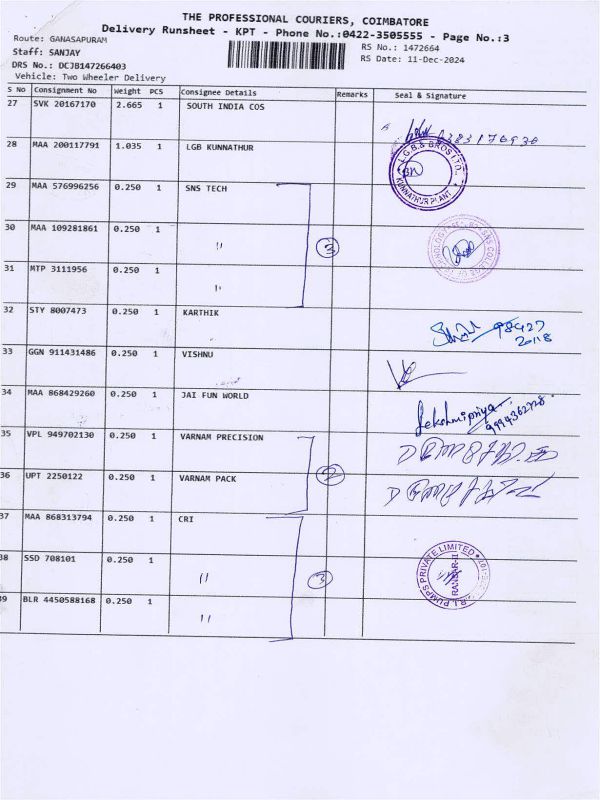 THE PROFESSIONAL COURIERS, COIMBATORE
Delivery Runsheet - KPT - Phone No.:0422-3505555 - Page No.:3
Route: GANASAPURAM
RS No.: 1472664
Staff: SANJAY
RS Date: 11-Dec-2024
DRS No.: DCJB147266403
Vehicle: Two Wheeler Delivery
S No Consignment No Weight PCS Consignee Details Remarks Seal & Signature
27 SVK 20167170 2.665 1 SOUTH INDIA COS
28 MAA 200117791 1.035 1 LGB KUNNATHUR
L.G.B.& BROS LTD. KUNNATHUR PLANT
29 MAA 576996256 0.250 1 SNS TECH
30 MAA 109281861 0.250 1 "
3
31 MTP 3111956 0.250 1 "
32 STY 8007473 0.250 1 KARTHIK
33 GGN 911431486 0.250 1 VISHNU
34 MAA 868429260 0.250 1 JAI FUN WORLD
Lekshmipriya
35 VPL 949702130 0.250 1 VARNAM PRECISION
2
36 UPT 2250122 0.250 1 VARNAM PACK
37 MAA 868313794 0.250 1 CRI
38 SSD 708101 0.250 1 "
3
PUMPS PRIVATE LIMITED
39 BLR 4450588168 0.250 1 "